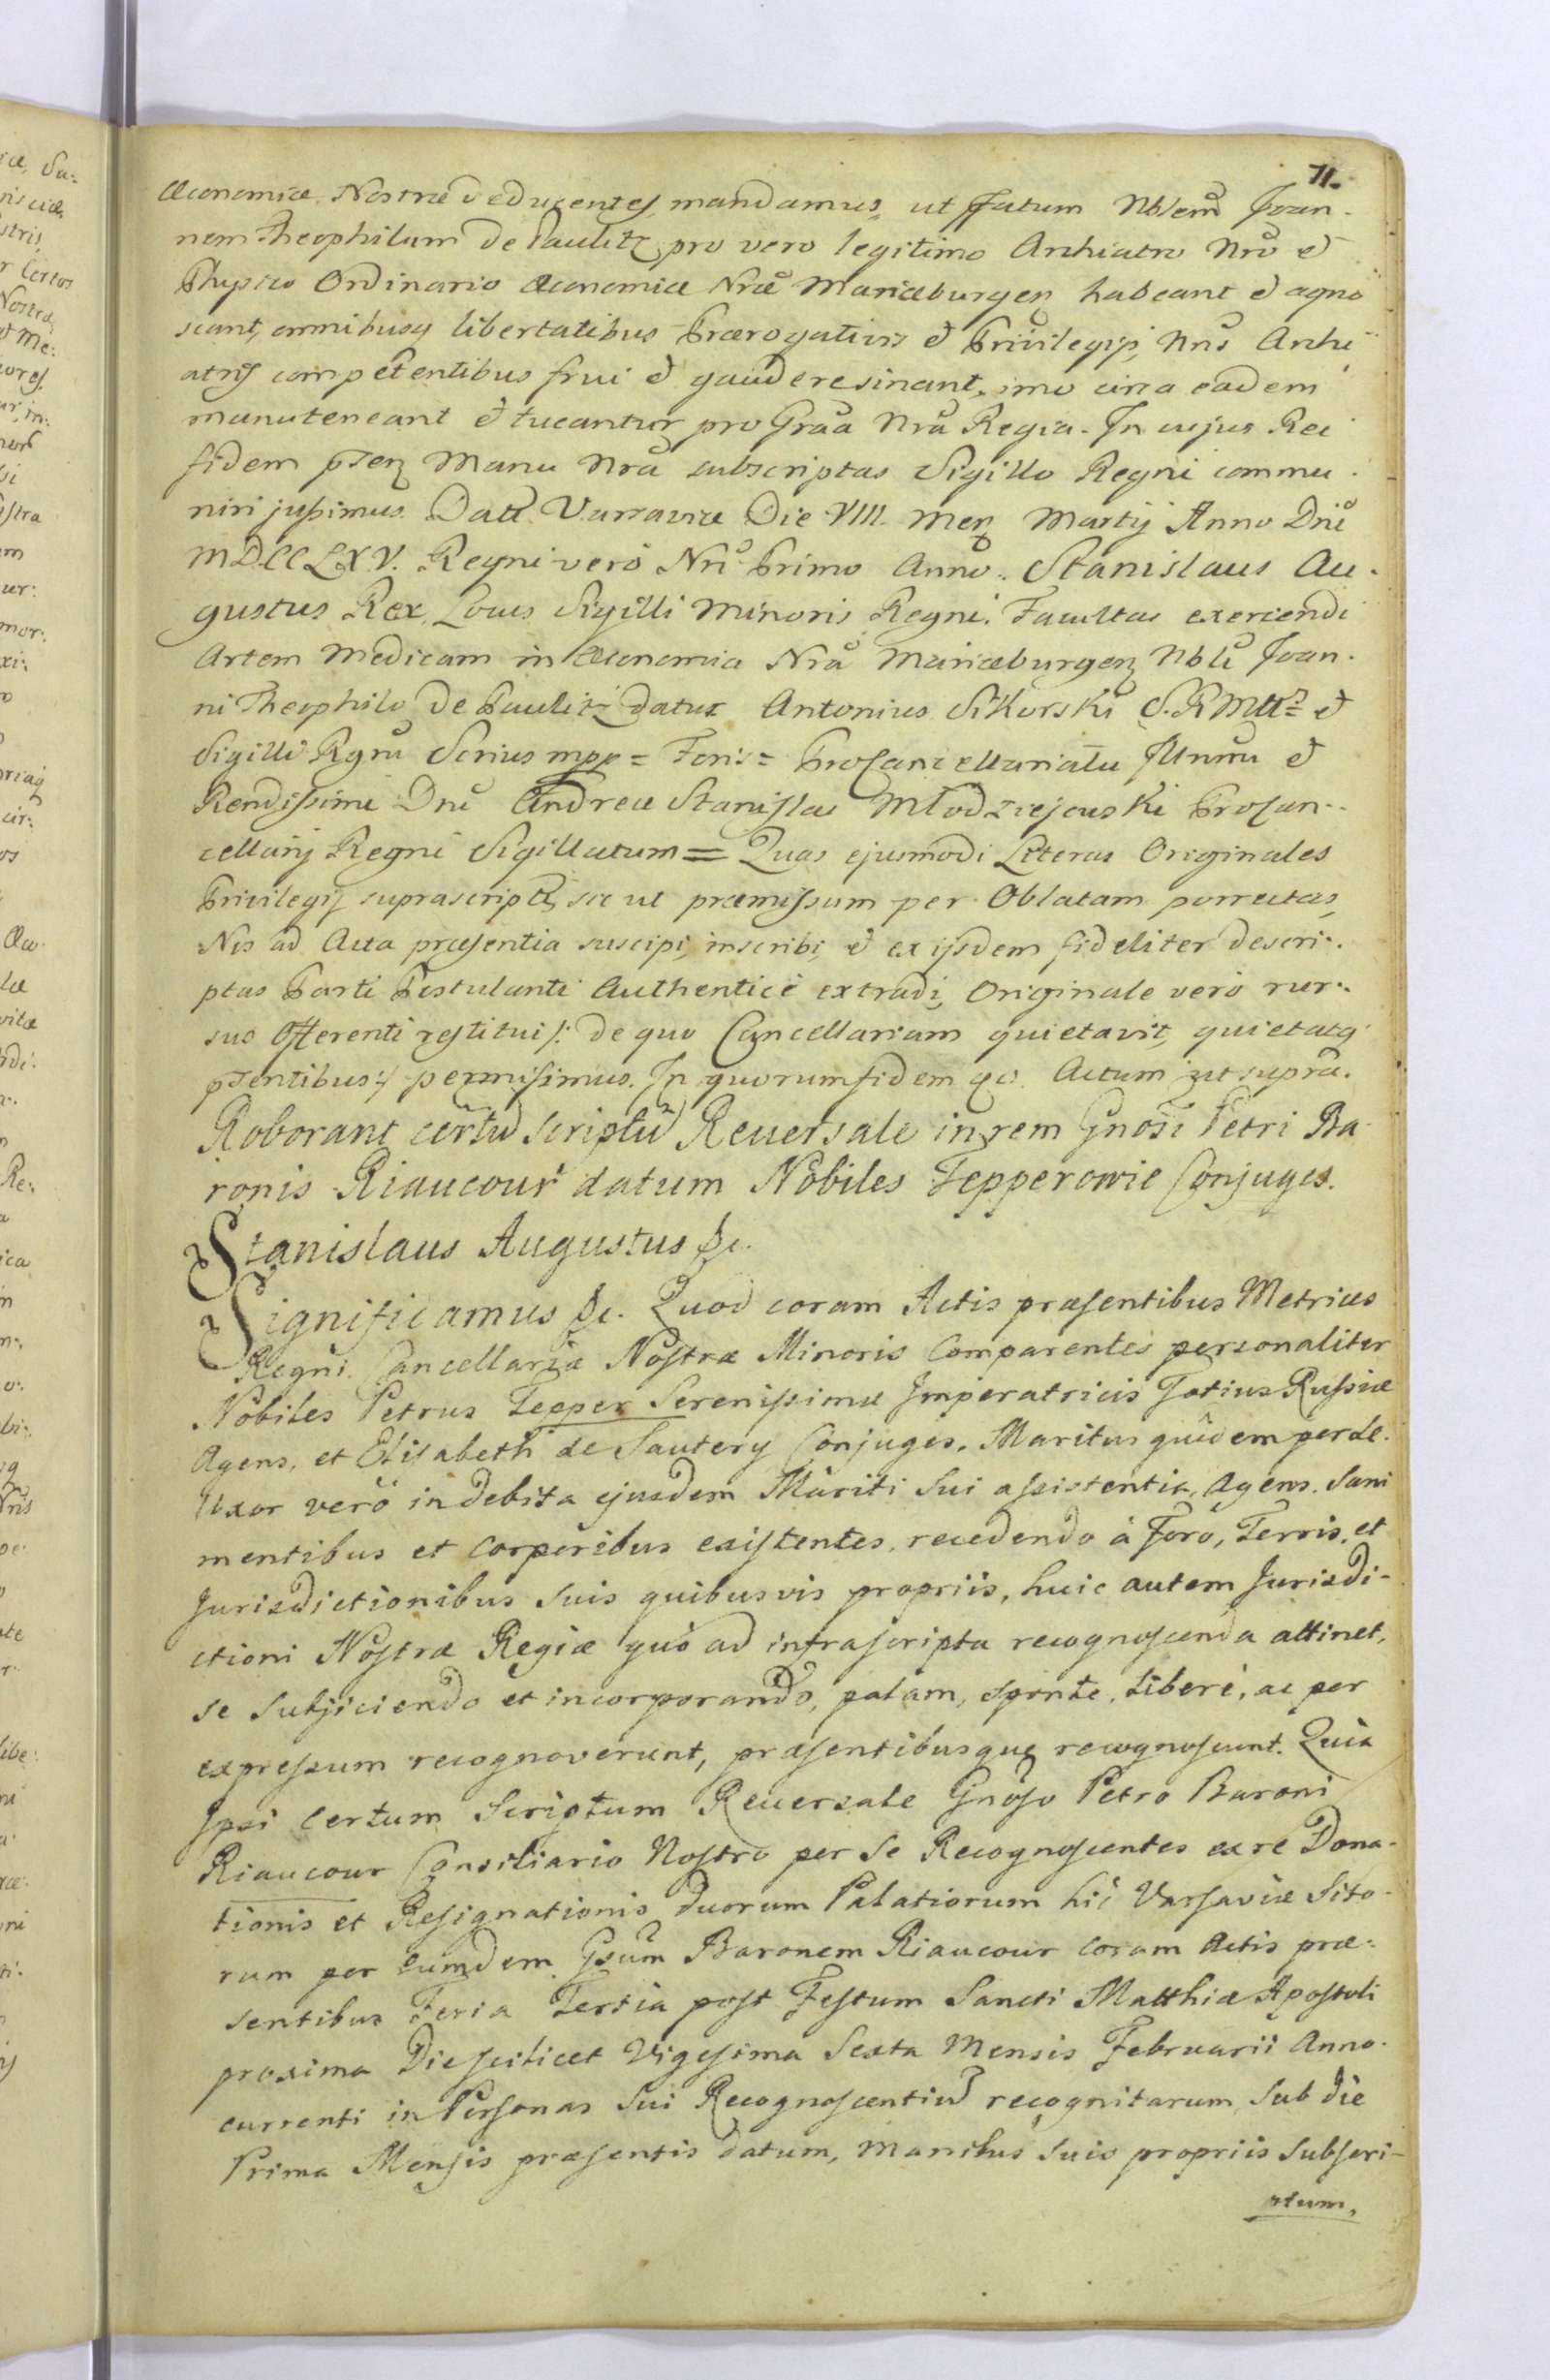 71.
Œconomiæ Nostræ deducentes, mandamus, ut pfatum Nblem Joan-
nem Theophilum de Paulitz pro vero legitimo Archiatro Nro et
Physico Ordinario Œconomiæ Nræ Mariæburgen habeant et agno
scant, omnibusq libertatibus Prærogativis et Privilegijs Nris Archi
atris competentibus frui et gaudere sinant, imo circa eadem
manuteneant et tueantur pro Graa Nra Regia. In cujus Rei
fidem psen Manu Nra subscriptas Sigillo Regni commu-
niri jussimus. Datt Varsaviæ Die VIII. Men Martij Anno Dni
MDCCLXV. Regni vero Nri Primo Anno. Stanislaus Au-
gustus Rex, Locus Sigilli Minoris Regni. Facultas exercendi
Artem Medicam in Œconomia Nra Mariæburgen Nbli Joan-
ni Theophilo de Paulitz datur Antonius Sikorski S. R. Mtt et
Sigilli Rgni Scrius mpp = Foris = Procancellariatu Illmi et
Rendissimi Dni Andreæ Stanislai Młodziejowski Procan-
cellarij Regni Sigillatum = Quas ejusmodi Literas Originales
Privilegij suprascripti, sic ut præmissum per Oblatam porrectas,
Nos ad Acta præsentia suscipi, inscribi, et ex ijsdem fideliter descri-
ptas Parti Postulanti Authenticè extradi, Originale verò rur-
sus Offerenti restitui /: de quo Cancellariam quietavit, quietatq
psentibus :/ permisimus. In quorum fidem &c. Actum ut supra.
Roborant certu Scriptu Reuersale in rem Gnosi Petri Ba-
ronis Riaucour datum Nobiles Tepperowie Conjuges.
Stanislaus Augustus &c.
Significamus &c. Quod coram Actis præsentibus Metrices
Regni Cancellariæ Nostræ Minoris Comparentes personaliter
Nobiles Petrus Tepper Serenissimæ Imperatricis Totius Russiæ
Agens, et Elisabeth de Sautery Conjuges, Maritus quidem per se.
Uxor verò in debita ejusdem Mariti Sui assistentia, Agens. Sani
mentibus et Corporibus existentes, recedendo à Foro, Terris, et
Jurisdictionibus Suis quibusvis propriis, huic autem Jurisdi-
ctioni Nostræ Regiæ quò ad infrascripta recognoscenda attinet,
se Subjiciendo et incorporando, palam, sponte, liberè, ac per
expressum recognoverunt, præsentibusque recognoscunt. Quia
Ipsi Certum Scriptum Reuersale Gnoso Petro Baroni
Riaucour Consiliario Nostro per Se Recognoscentes ex re Dona-
tionis et Resignationis duorum Palatiorum hic Varsaviæ Sito-
rum per Eumdem Gsum Baronem Riaucour Coram Actis præ-
sentibus Feria Tertia post Festum Sancti Matthiæ Apostoli
proxima Die scilicet Vigesima Sexta Mensis Februarii Anno
currenti in Personas Sui Recognoscentiu recognitarum, Sub die
Prima Mensis præsentis datum, Manibus Suis propriis Subscri-
ptum,